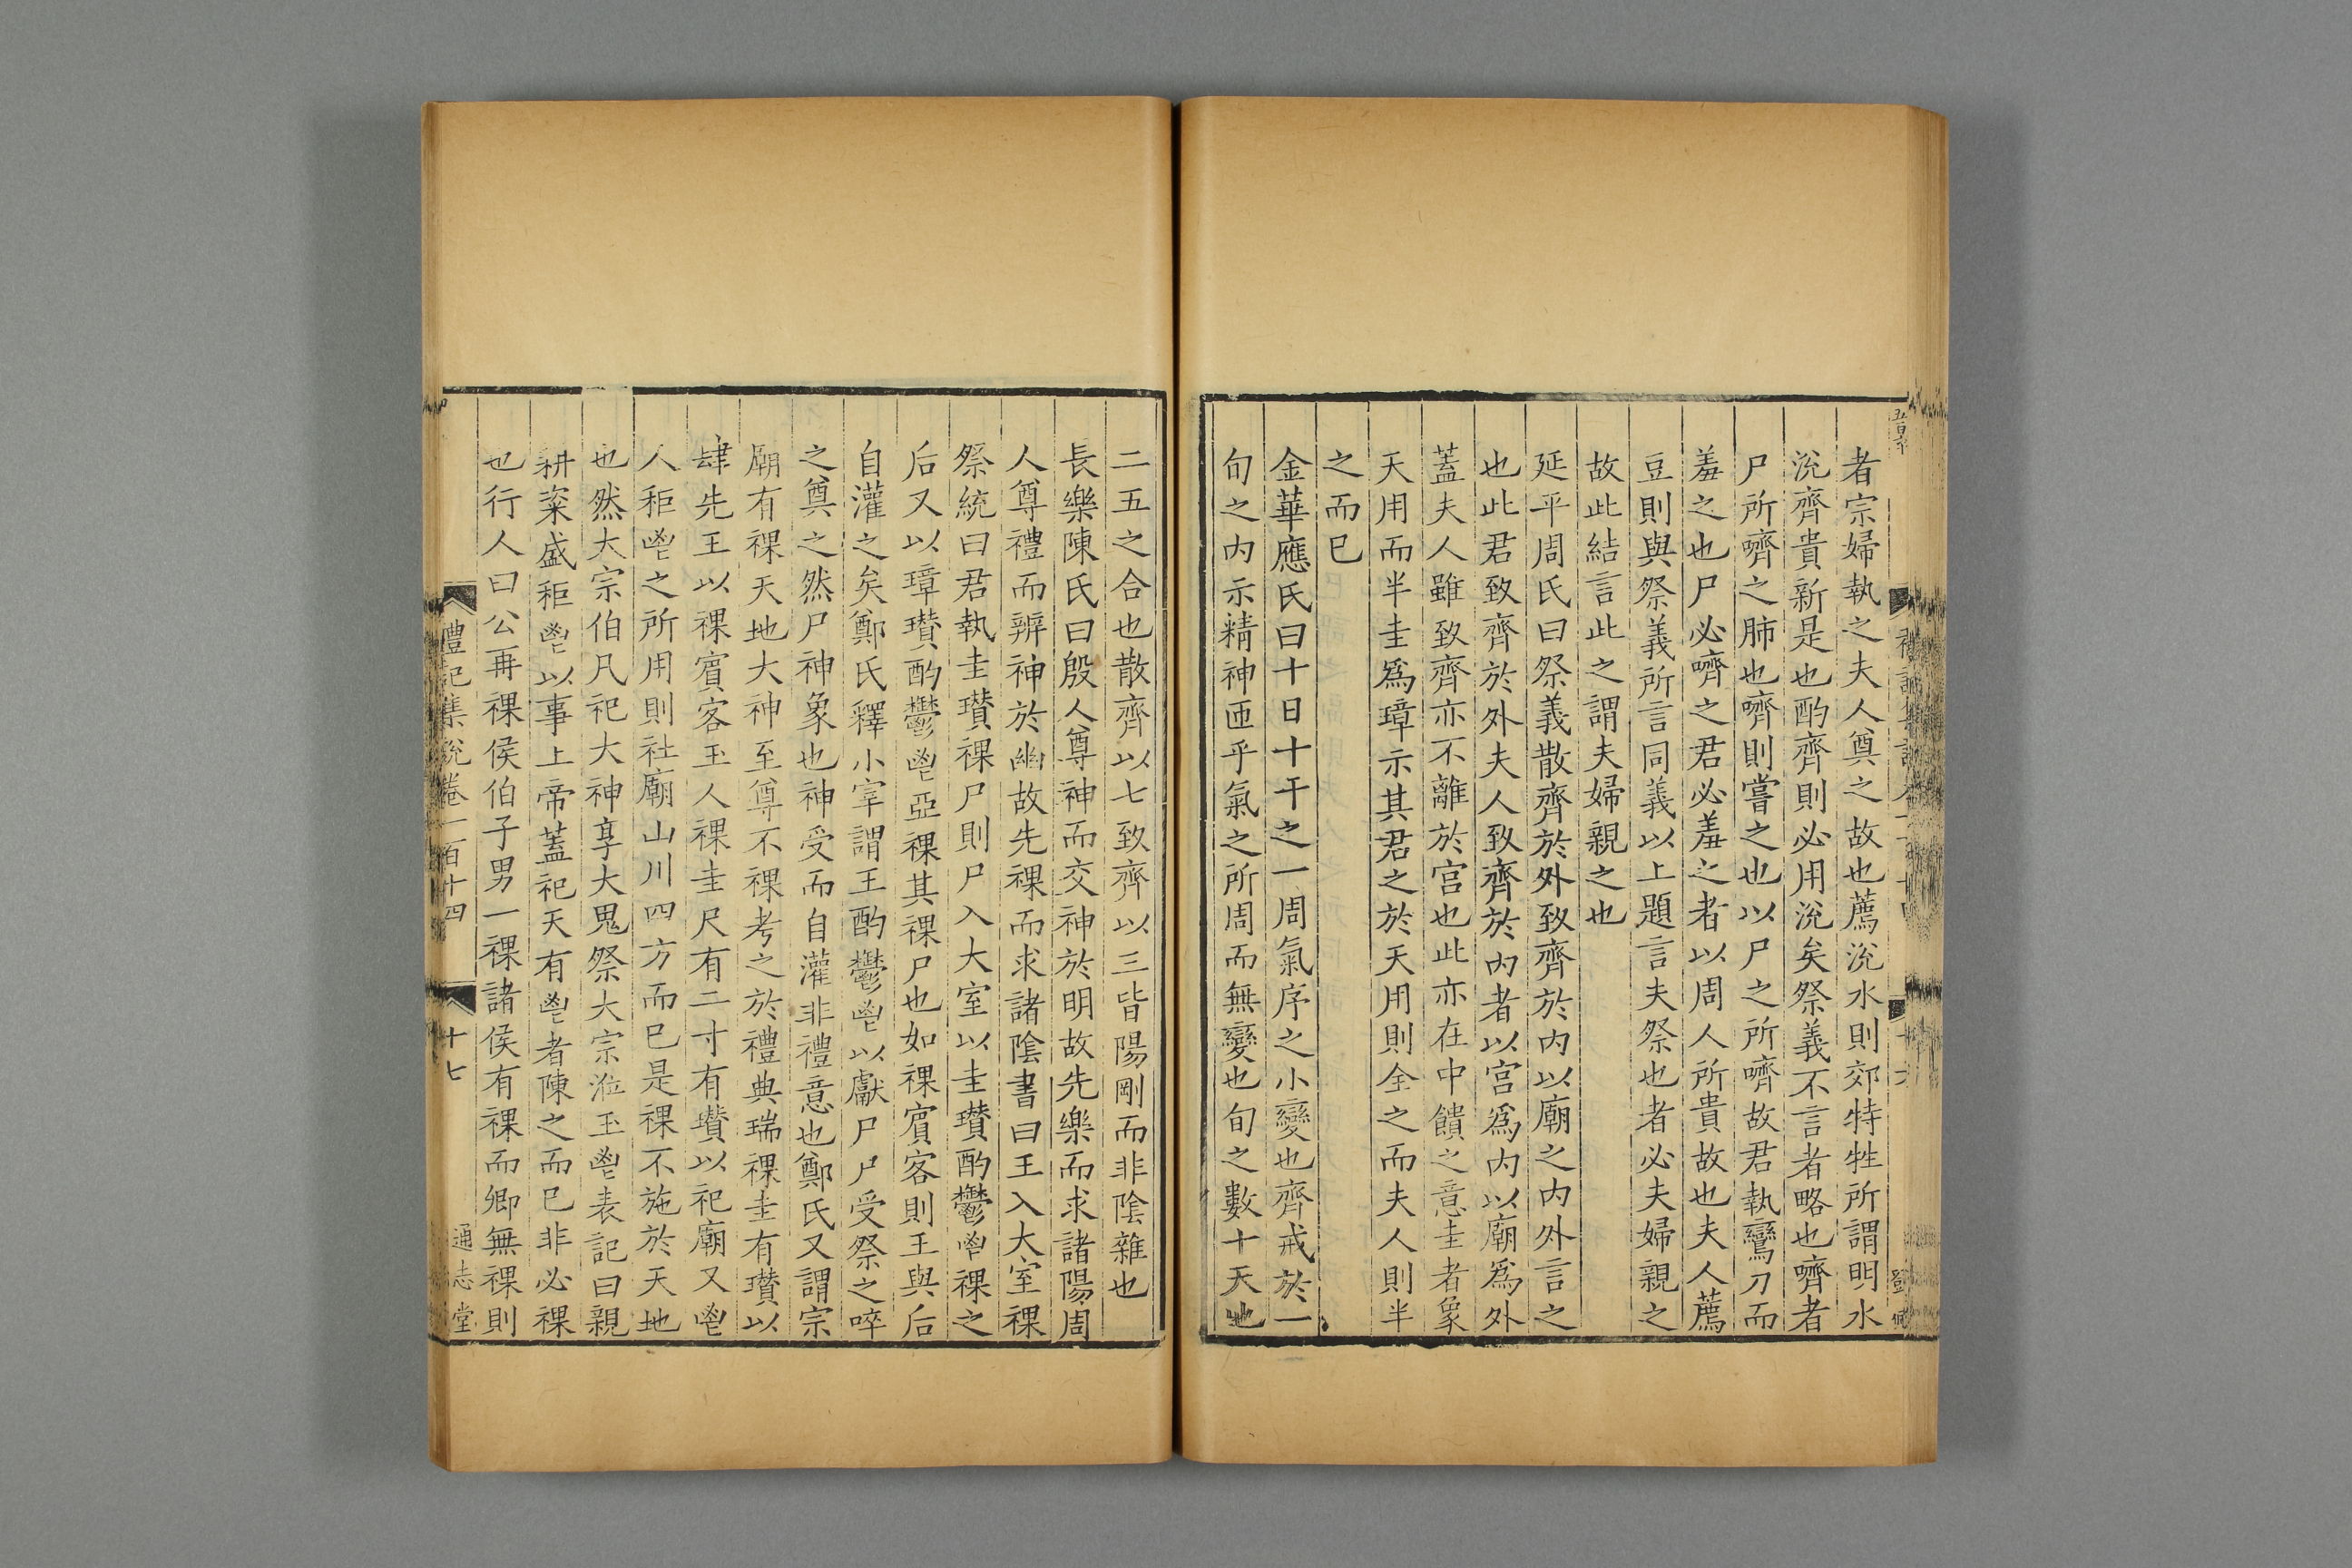 者宗婦執之夫人奠之故也薦涗水則郊特牲所謂明水
涗齊貴新是也酌齊則必用涗矣祭義不言者略也嚌者
尸所嚌之肺也嚌則嘗之也以尸之所嚌故君執鸞刀而
羞之也尸必嚌之君必羞之者以周人所貴故也夫人薦
豆則與祭義所言同義以上題言夫祭也者必夫婦親之
故此結言此之謂夫婦親之也
延平周氏曰祭義散齊於外致齊於内以廟之内外言之
也此君致齊於外夫人致齊於内者以宫爲内以廟爲外
蓋夫人雖致齊亦不離於宫也此亦在中饋之意圭者象
天用而半圭爲璋示其君之於天用則全之而夫人則半
之而已
金華應氏曰十日十干之一周氣序之小變也齊戒於一
旬之内示精神匝乎氣之所周而無變也旬之數十天地
二五之合也散齊以七致齊以三皆陽剛而非陰雜也
長樂陳氏曰殷人尊神而交神於明故先樂而求諸陽周
人尊禮而辨神於幽故先祼而求諸陰書曰王入大室祼
祭統曰君執圭瓚祼尸則尸入大室以圭瓚酌鬱鬯祼之
后又以璋瓚酌鬱鬯亞祼其祼尸也如祼賓客則王與后
自灌之矣鄭氏釋小宰謂王酌鬱鬯以獻尸尸受祭之啐
之奠之然尸神象也神受而自灌非禮意也鄭氏又謂宗
廟有祼天地大神至尊不祼考之於禮典瑞祼圭有瓚以
肆先王以祼賓客玉人祼圭尺有二寸有瓚以祀廟又鬯
人秬鬯之所用則社廟山川四方而已是祼不施於天地
也然大宗伯凡祀大神享大鬼祭大宗涖玉鬯表記曰親
耕粢盛秬鬯以事上帝蓋祀天有鬯者陳之而已非必祼
也行人曰公再祼侯伯子男一祼諸侯有祼而卿無祼則
禮記集説卷一百十四
十七
通志堂